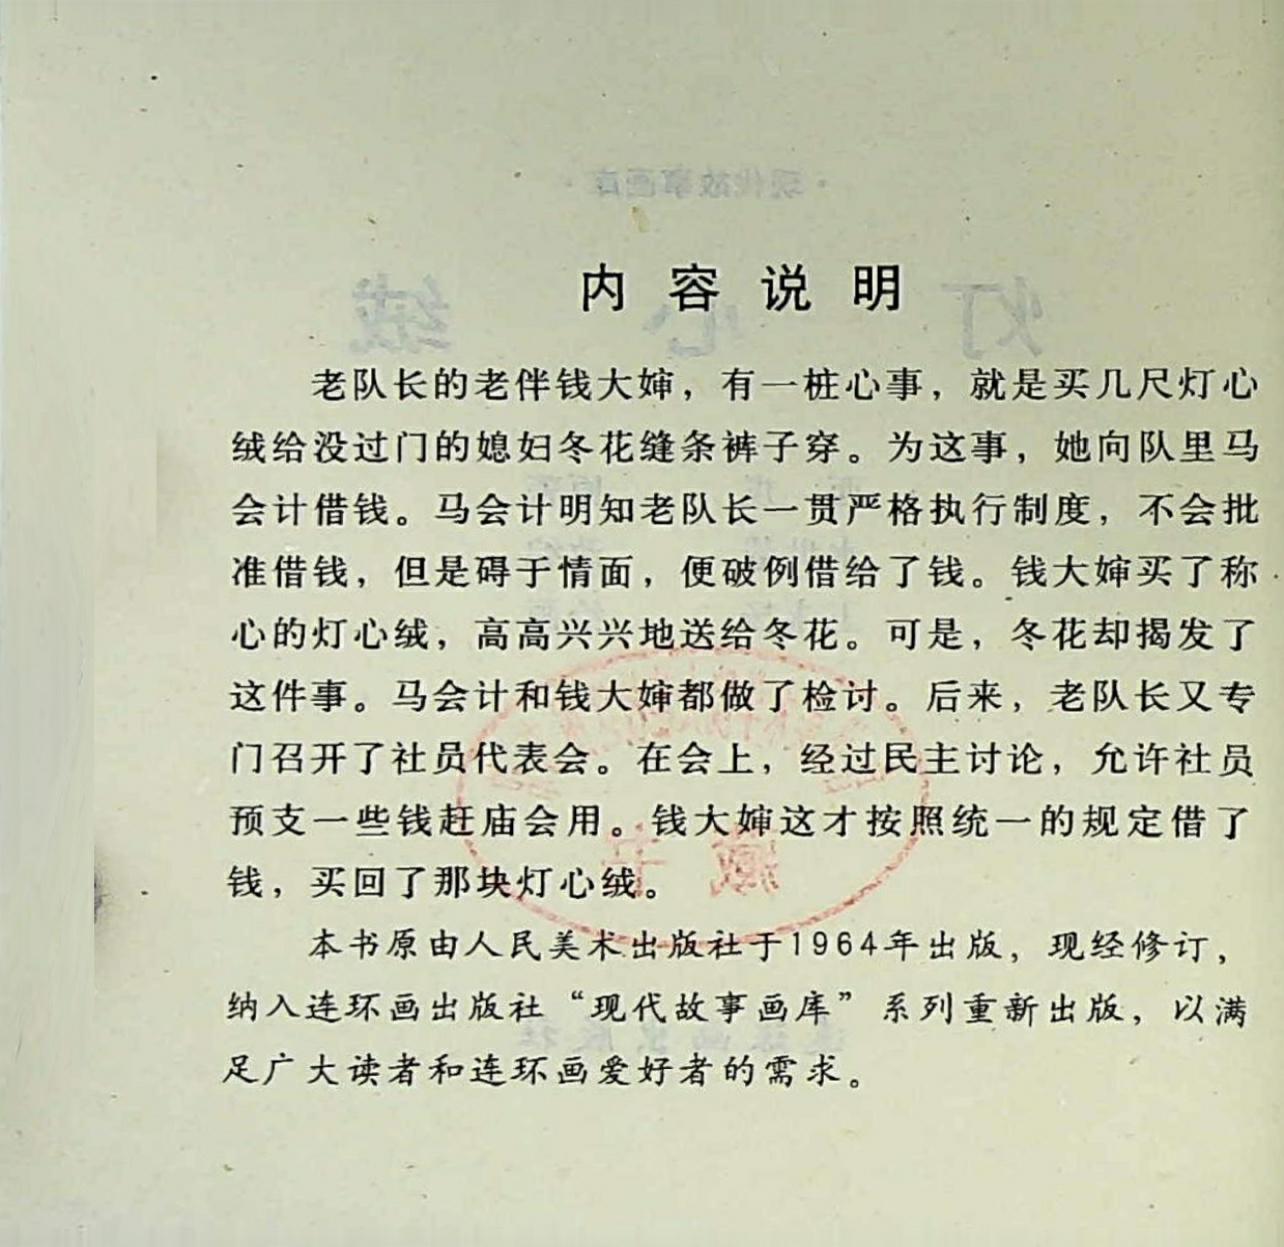 内容说明
老队长的老伴钱大婶，有一桩心事，就是买几尺灯心
绒给没过门的媳妇冬花缝条裤子穿。为这事，她向队里马
会计借钱。马会计明知老队长一贯严格执行制度，不会批
准借钱，但是碍于情面，便破例借给了钱。钱大婶买了称
心的灯心绒，高高兴兴地送给冬花。可是，冬花却揭发了
这件事。马会计和钱大婶都做了检讨。后来，老队长又专
门召开了社员代表会。在会上，经过民主讨论，允许社员
预支一些钱赶庙会用。钱大婶这才按照统一的规定借了
钱，买回了那块灯心绒。
本书原由人民美术出版社于1964年出版，现经修订，
纳入连环画出版社“现代故事画库”系列重新出版，以满
足广大读者和连环画爱好者的需求。